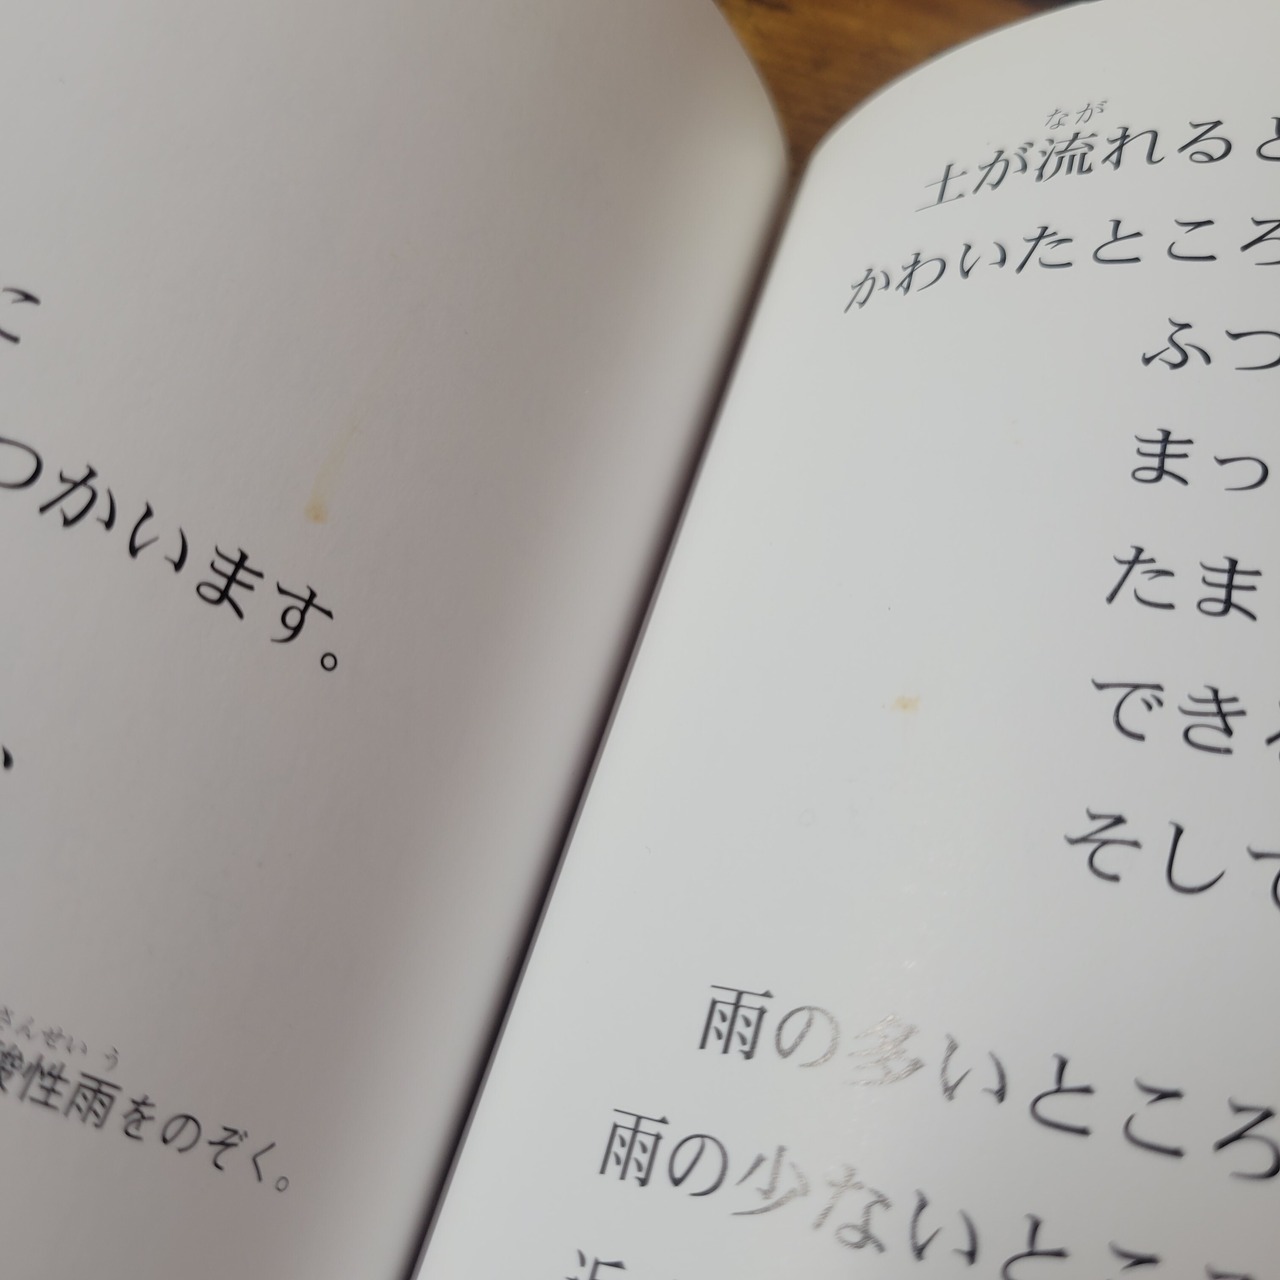 に
つかいます。
い
さんせいう
酸性雨をのぞく。
なが
土が流れると
かわいたところ
ふつ
まっ
たま
でき
そして
雨の多いところ
雨の少ないところ